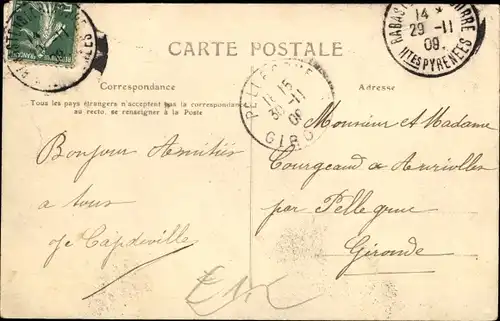 CARTE POSTALE
RABAS
14 *
29 -11
09.
HTES PYRÉNÉES
PELLEGRUE
11 15
30 -11
09
GIRONDE
Correspondance
Adresse
Tous les pays étrangers n'acceptent pas la correspondance
au recto, se renseigner à la Poste
Bonjour Amitiés
a tous
Capdeville
Monsieur et Madame
Courgeaud a Auriolles
par Pellegrue
Gironde